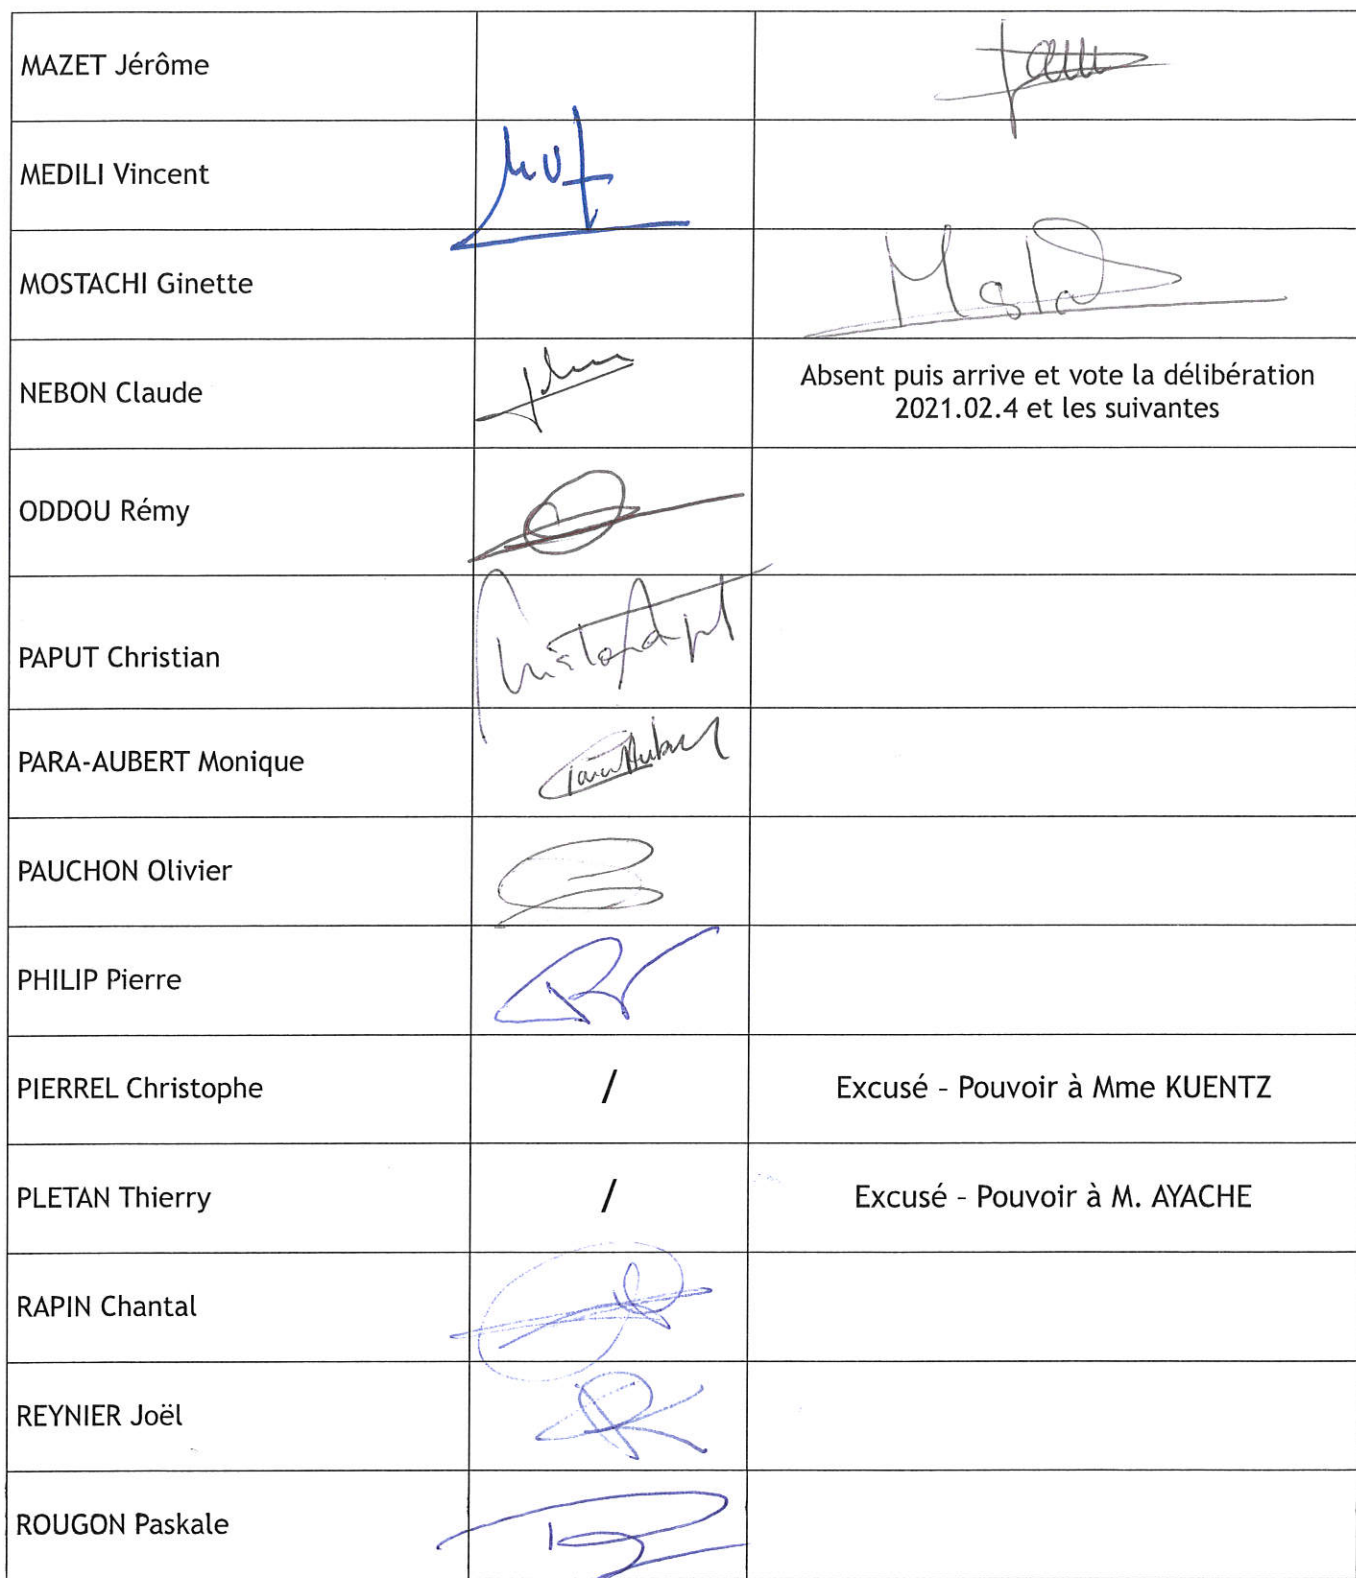 MAZET Jérôme
MEDILI Vincent
MOSTACHI Ginette
NEBON Claude
Absent puis arrive et vote la délibération
2021.02.4 et les suivantes
ODDOU Rémy
PAPUT Christian
PARA-AUBERT Monique
PAUCHON Olivier
PHILIP Pierre
PIERREL Christophe / Excusé - Pouvoir à Mme KUENTZ
PLETAN Thierry / Excusé - Pouvoir à M. AYACHE
RAPIN Chantal
REYNIER Joël
ROUGON Paskale